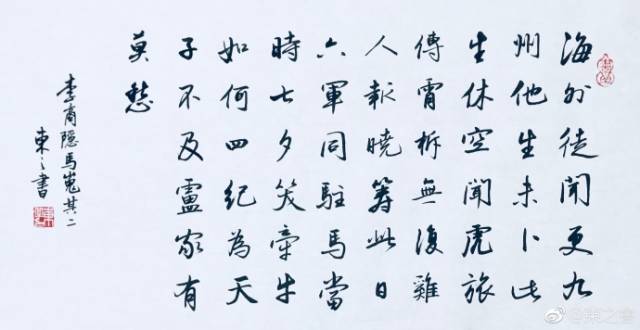 海外徒聞更九
州他生未卜此
生休空聞虎旅
傳宵柝無復雞
人報曉籌此日
六軍同駐馬當
時七夕笑牽牛
如何四紀為天
子不及盧家有
莫愁
李商隐馬嵬其二
東之書